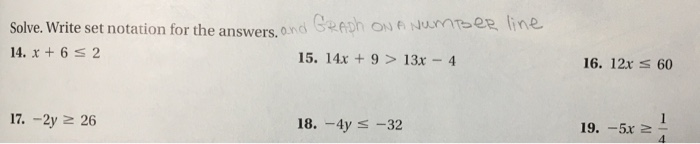 Solve. Write set notation for the answers. and GRAPH ON A NUMBER line
14. x + 6 ≤ 2
15. 14x + 9 > 13x − 4
16. 12x ≤ 60
17. −2y ≥ 26
18. −4y ≤ −32
19. −5x ≥ 1/4